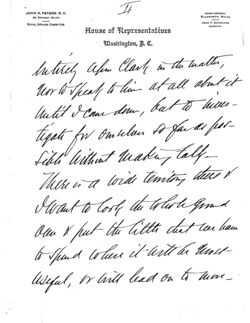 4
JOHN A. PETERS, M. C.
House of Representatives
Washington, D. C.
entirely upon Clark in the matter,
nor to speak to him at all about it
until I come down, but to inves-
tigate for ourselves so far as pos-
sible without making talk—
There is a wide territory there &
I want to look the whole ground
over & put the little that we have
to spend where it will be most
useful, or will lead on to more—